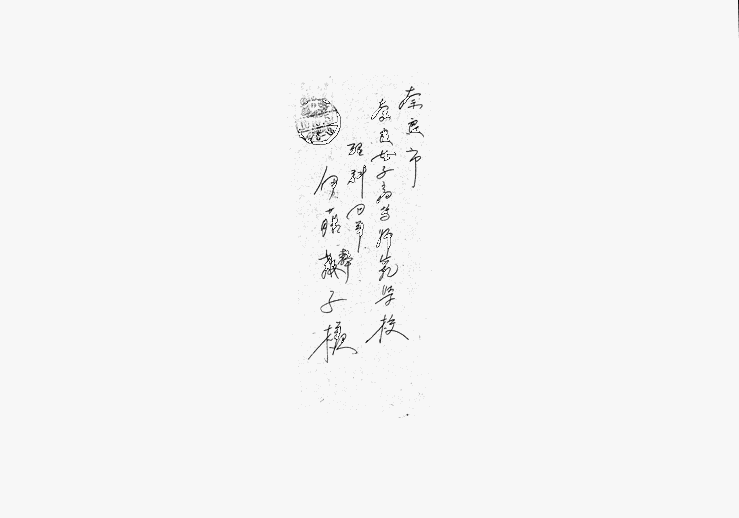 奈良市
奈良女子高等師範学校
理科四年
伊藤子様